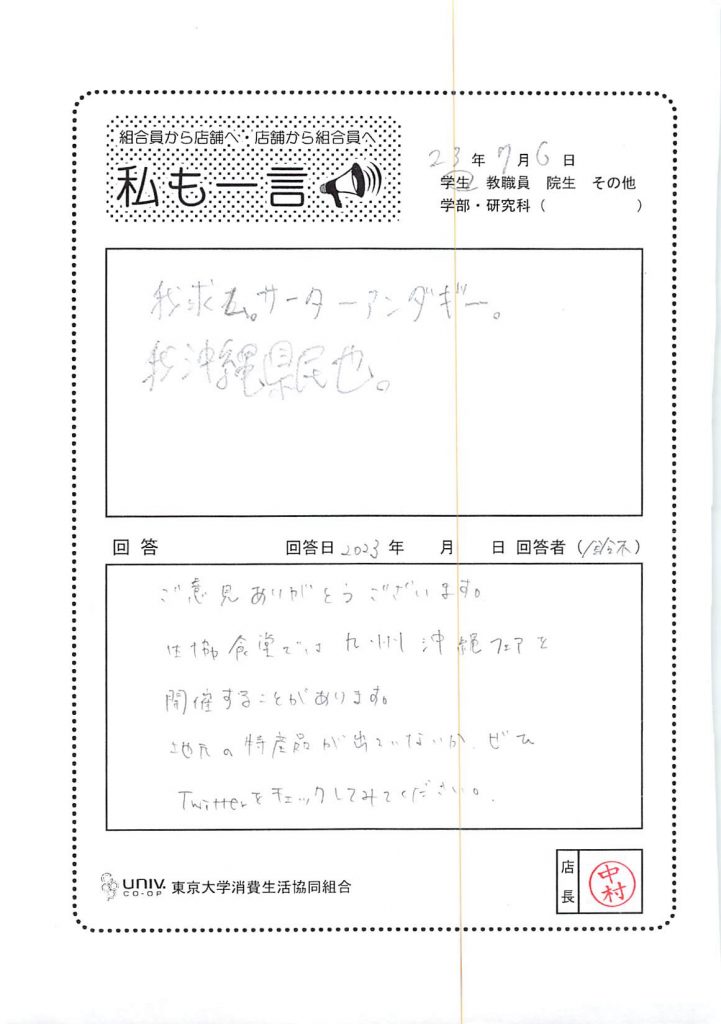 組合員から店舗へ・店舗から組合員へ
私も一言
23年 7月 6日
学生 教職員 院生 その他
学部・研究科( )
我求ム。サーターアンダギー。
我沖縄県民也。
回答 回答日 2023年 月 日 回答者( )
ご意見ありがとうございます。
生協食堂では九州沖縄フェアを
開催することがあります。
地元の特産品が出ていないか、ぜひ
Twitterをチェックしてみてください。
UNIV. CO-OP 東京大学消費生活協同組合
店長
中村